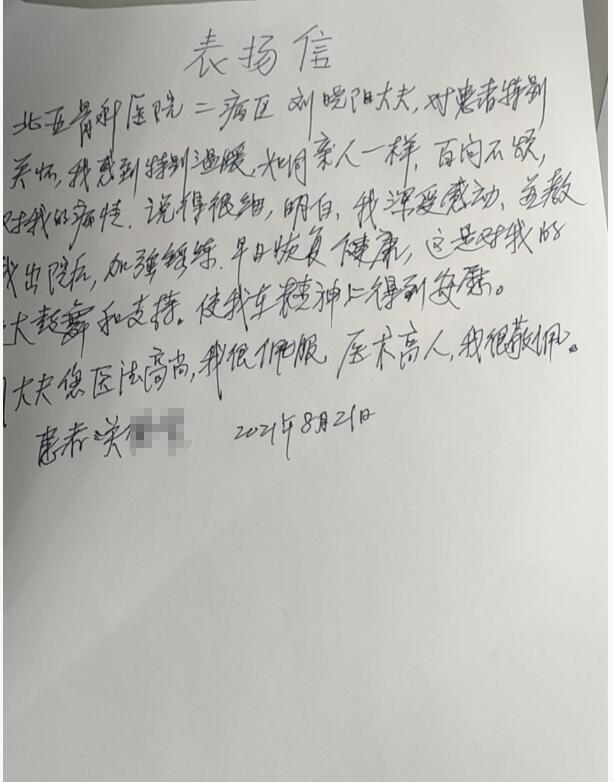 表扬信
北亚骨科医院二病区刘晓阳大夫,对患者特别
关怀,我感到特别温暖,如同亲人一样,百问不烦,
对我的病情.说得很细,明白,我深受感动,并教
我出院后,加强锻练.早日恢复健康,这是对我的
大鼓舞和支持。使我在精神上得到安慰。
大夫您医法高尚,我很佩服 医术高人,我很敬佩。
患者:关 2021年8月21日